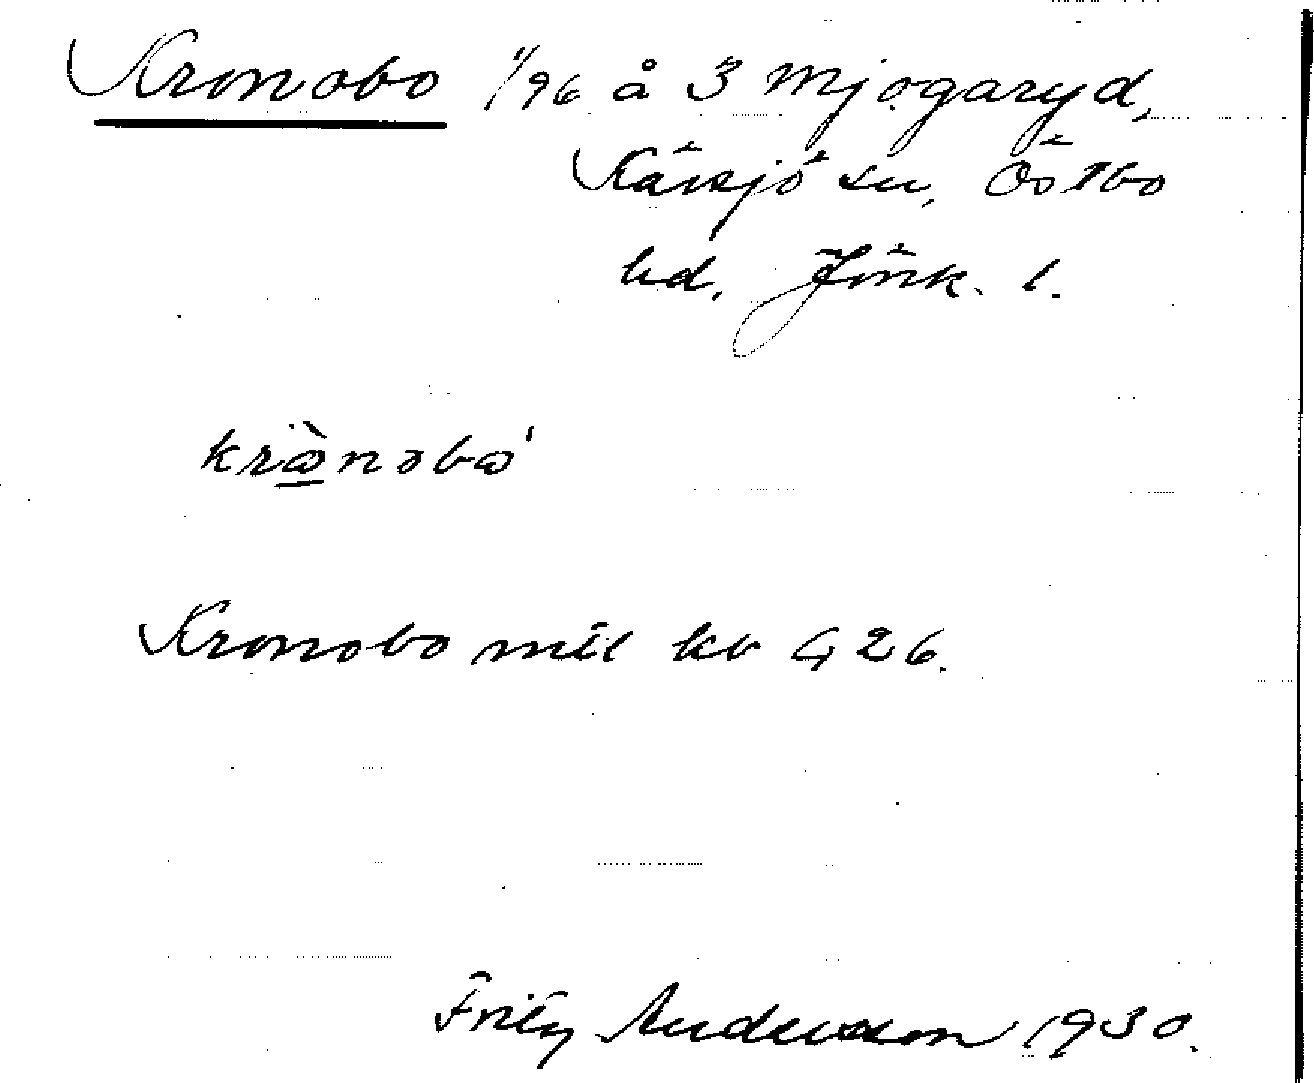 Kronobo 1/96 å 3 Mjogaryd,
Kävsjö sn, Östbo
hd, Jönk. l.
krὼnəbω'
Kronobo mil kv G 26.
Fritz Andersson 1930.